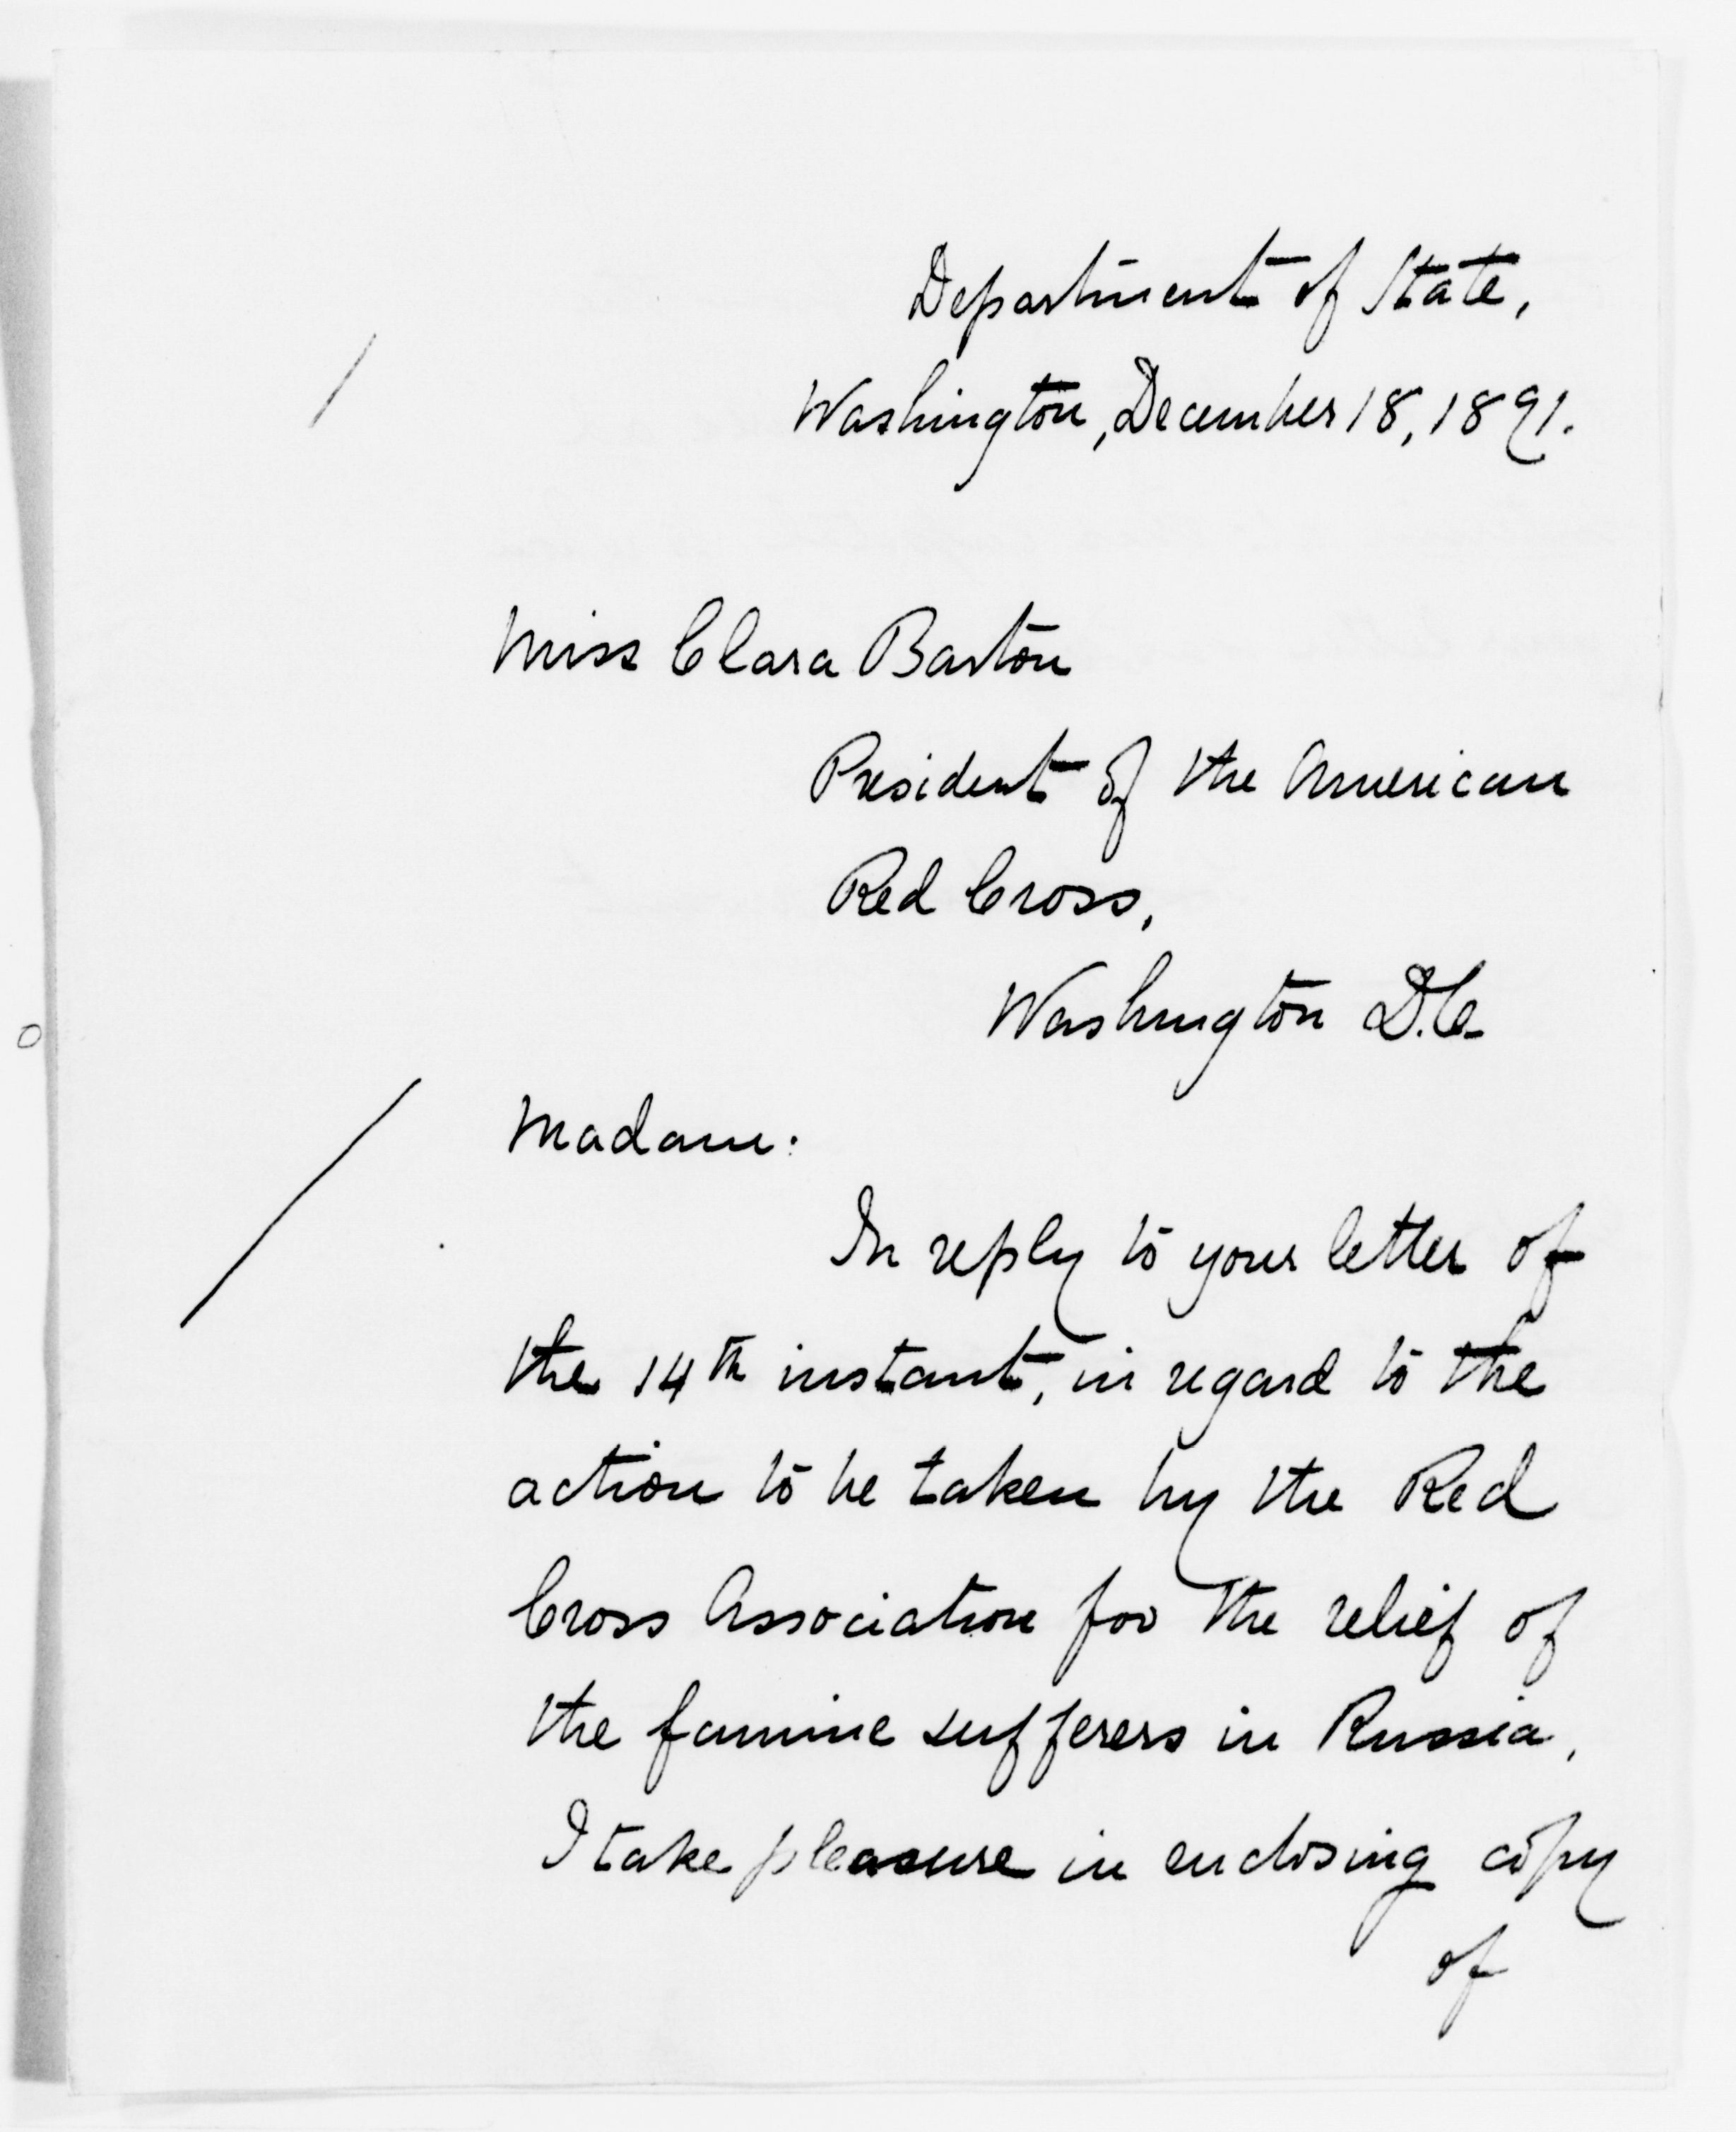 Department of State,
Washington, December 18, 1891.
Miss Clara Barton
President of the American
Red Cross,
Washington D.C.
Madam:
In reply to your letter of
the 14th instant, in regard to the
action to be taken by the Red
Cross Association for the relief of
the famine sufferers in Russia,
I take pleasure in enclosing copy
of